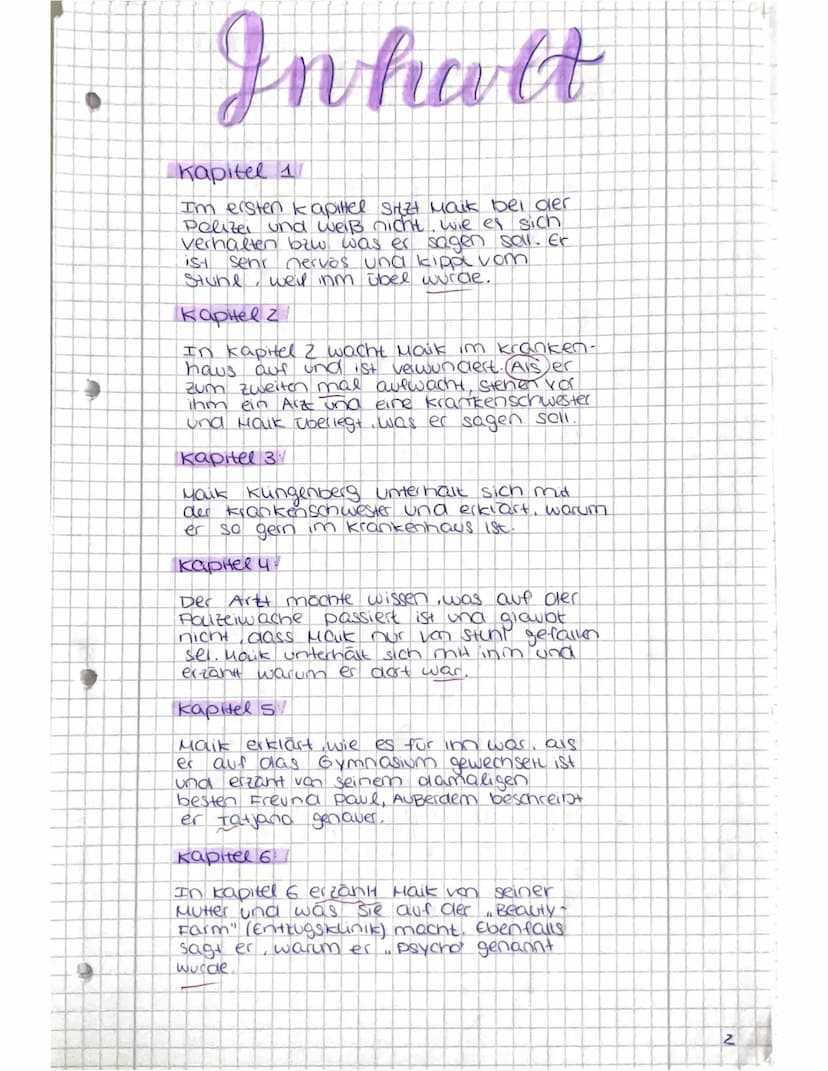 Inhalt
Kapitel 1
Im ersten Kapittel sitzt Maik bei der
Polizei und weiß nicht, wie er sich
verhalten bzw. was er sagen soll. Er
ist sehr nervös und kippt vom
Stuhl, weil ihm übel wurde.
Kapitel 2
In Kapitel 2 wacht Maik im Kranken-
haus auf und ist verwundert. Als er
zum zweiten mal aufwacht, stehen vor
ihm ein Arzt und eine Krankenschwester
und Maik überlegt, was er sagen soll.
Kapitel 3
Maik Klingenberg unterhält sich mit
der Krankenschwester und erklärt, warum
er so gern im Krankenhaus ist.
Kapitel 4
Der Artzt möchte wissen, was auf der
Polizeiwache passiert ist und glaubt
nicht, dass Maik nur von Stuhl gefallen
sei. Maik unterhält sich mit ihm und
erzählt warum er dort war.
Kapitel 5
Maik erklärt, wie es für ihn war, als
er auf das Gymnasium gewechselt ist
und erzählt von seinem damaligen
besten Freund Paul, Außerdem beschreibt
er Tatjana genauer.
Kapitel 6
In Kapitel 6 erzählt Maik von seiner
Mutter und was sie auf der „Beauty-
Farm" (Entzugsklinik) macht. Ebenfalls
sagt er, warum er „Psycho" genannt
wurde.
2